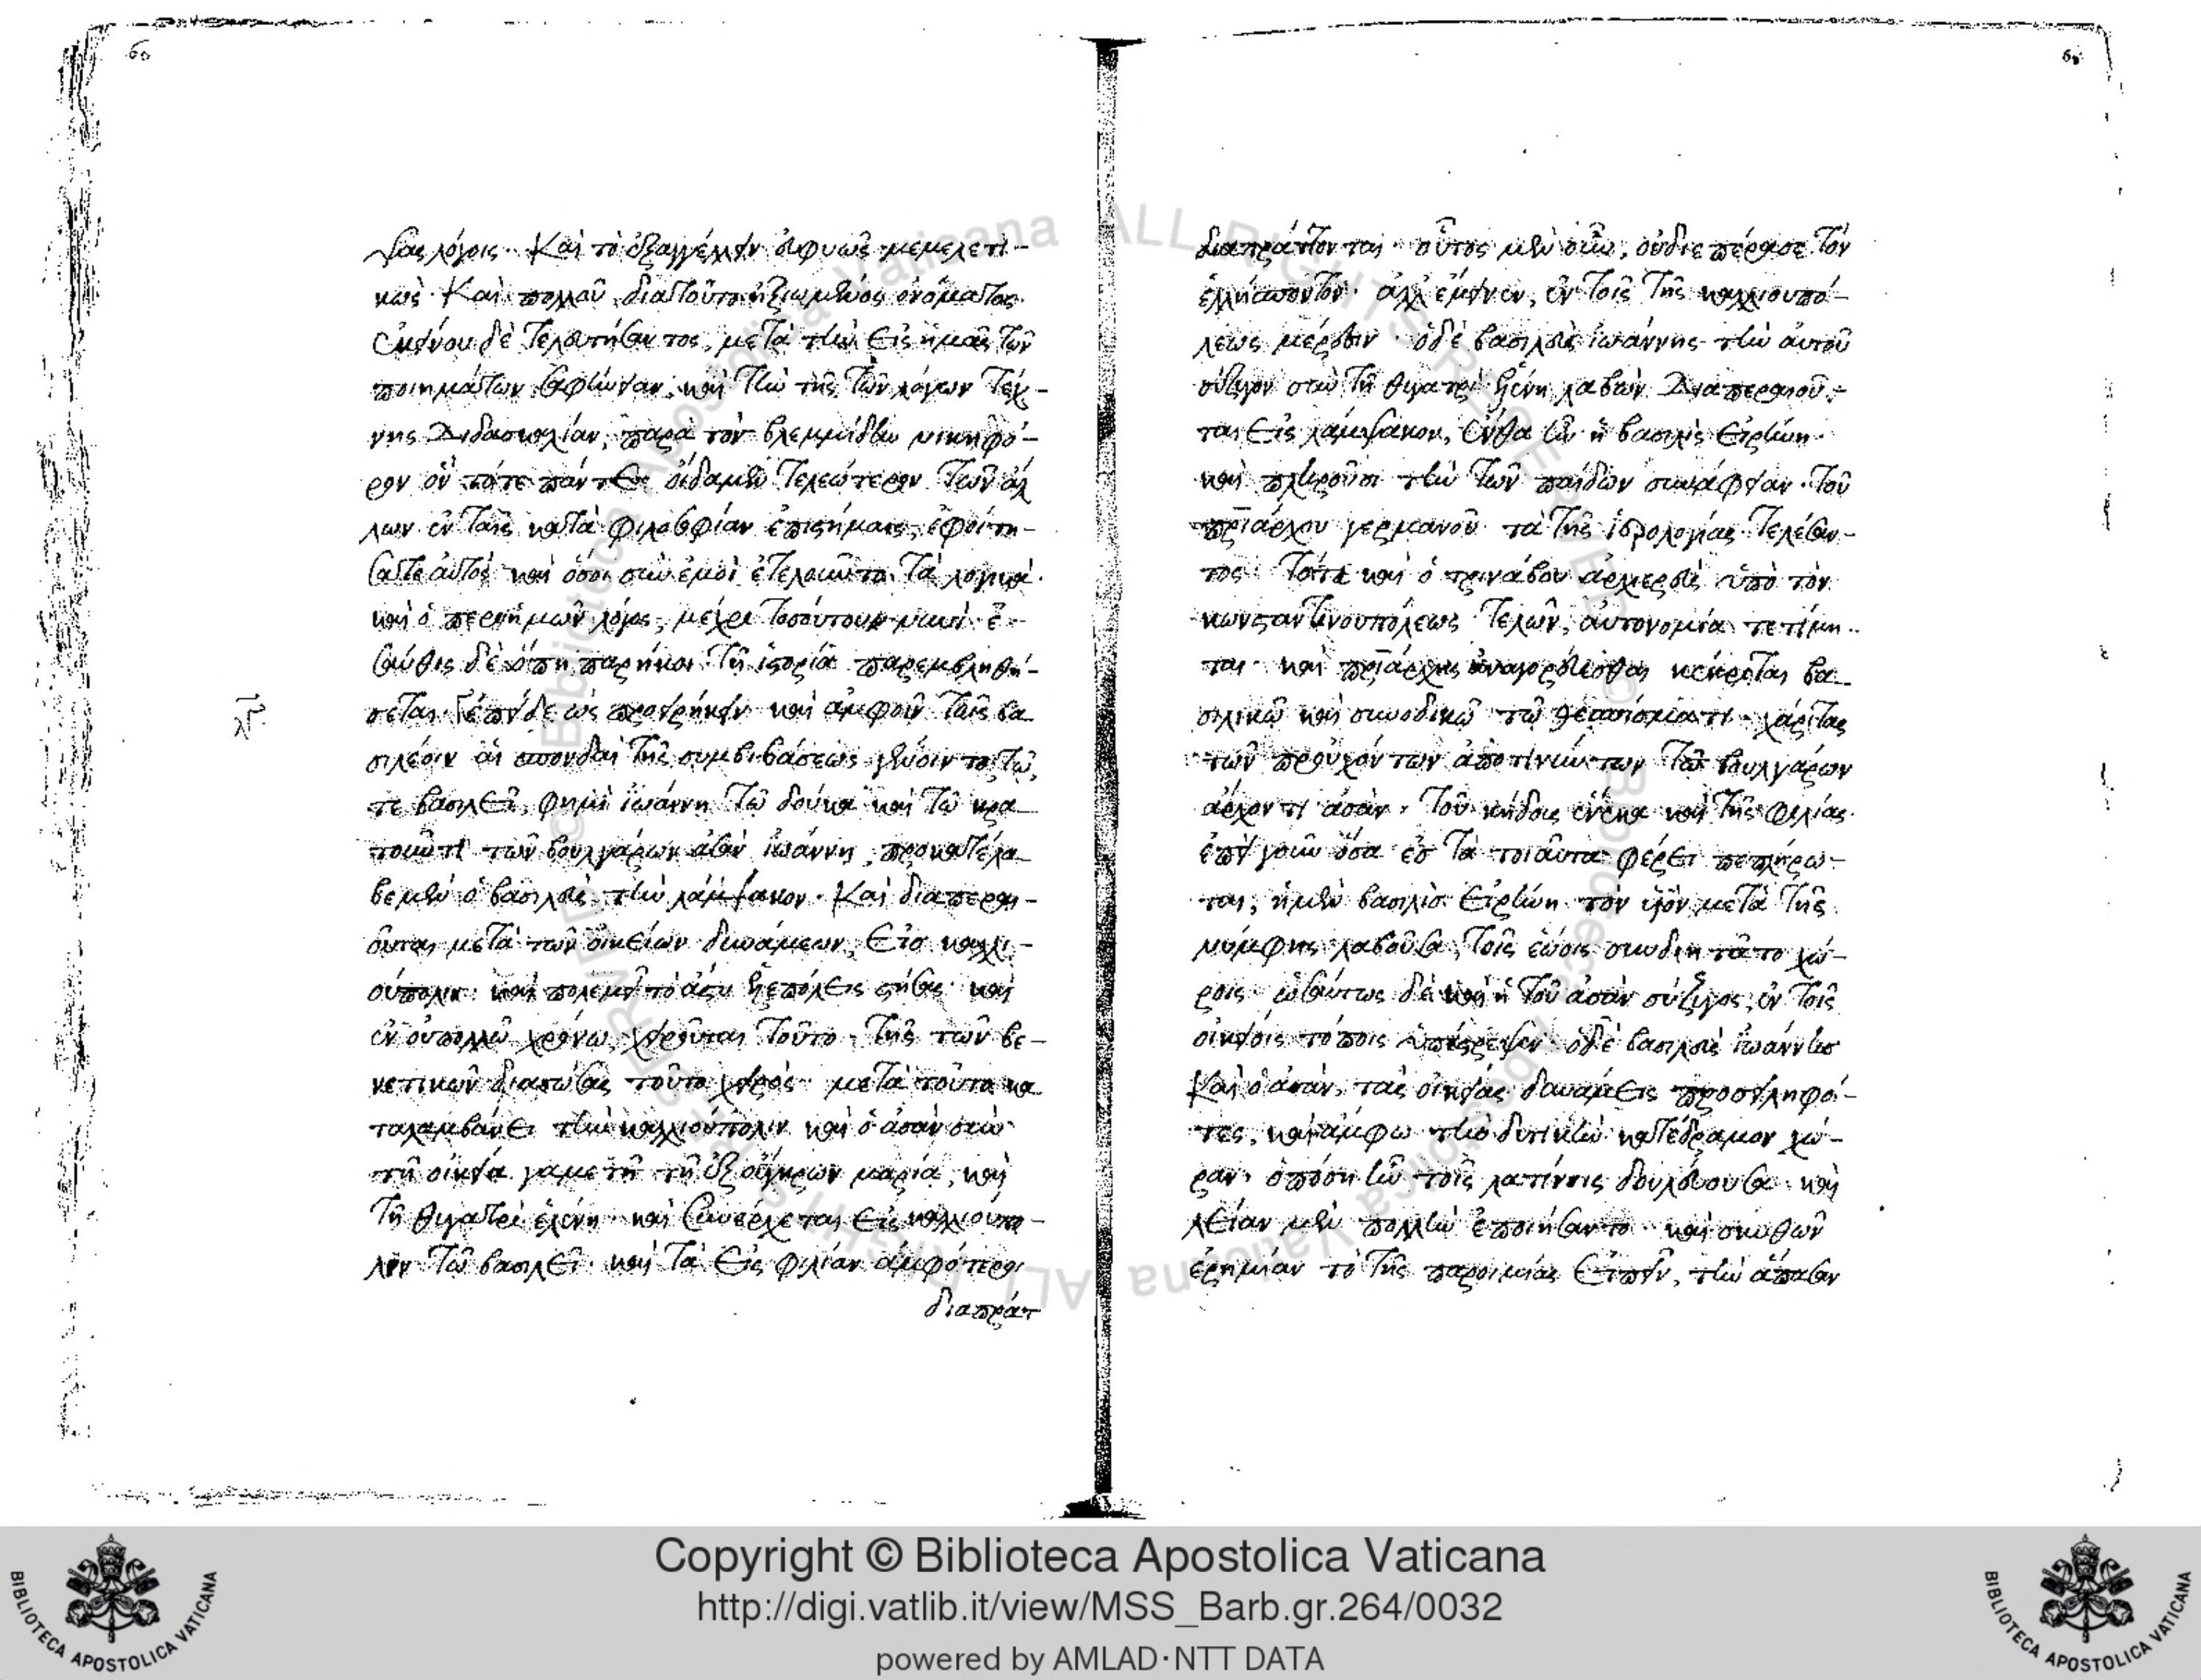 60
σας λόγοις. Καὶ τὸ ἐξαγγέλλειν εὐφυῶς μεμελετη-
κὼς. Καὶ πολλοῦ διὰ τοῦτο ἠξιωμένος ὀνόματος.
ἐκείνου δὲ τελευτήσαντος, μετὰ τὴν εἰς ἡμᾶς τῶν
ποιημάτων σαφήνειαν, καὶ τὴν τῆς τῶν λόγων τέχ-
νης διδασκαλίαν, παρὰ τὸν βλεμμίδην νικηφό-
ρον ὃν τότε πάντες οἴδαμεν τελεώτερον τῶν ἀλ
λων ἐν ταῖς κατὰ φιλοσοφίαν ἐπιστήμαις, ἐφοίτη-
σα τε αὐτὸς καὶ ὅσοι σὺν ἐμοὶ ἐτελοῦντο τὰ λογικά.
καὶ ὁ περὶ ἡμῶν λόγος, μέχρι τοσούτου
σαῦθις δὲ ὅπη παρήκοι τῇ ἱστορίᾳ παρεμβληθή-
σεται. ἐπεὶ δὲ ὡς προειρήκειν καὶ ἀμφοῖν τοῖς βα
σιλέσιν αἱ σπονδαὶ τῆς συμβιβάσεως γεγόνασι τῷ
τε βασιλεῖ, φημὶ ἰωάννη τῷ δούκα καὶ τῷ κρα-
τοῦντι τῶν βουλγάρων ἀσὰν ἰωάννη, προκατέλα-
βε μὲν ὁ βασιλεὺς τὴν λάμψακον. Καὶ διαπεραι-
οῦται μετὰ τῶν οἰκείων δυνάμεων, εἰς καλλι-
ούπολιν. καὶ πολεμεῖ τὸ ἄστυ ἐξεπόλεις στήσας καὶ
ἐν οὐ πολλῷ χρόνῳ, χειροῦται τοῦτο, τῆς τῶν βε-
νετικῶν διασώσας τοῦτο χειρός. μετὰ τοῦτο κα
ταλαμβάνει τὴν καλλιούπολιν καὶ ὁ ἀσὰν σὺν
τῇ οἰκείᾳ γαμετῇ τῇ ἐξ οὔγκρων μαρίᾳ, καὶ
τῇ θυγατρὶ ἑλένῃ. καὶ συνέρχεται εἰς καλλιουπο-
λιν τῷ βασιλεῖ. καὶ τὰ εἰς φιλίαν ἀμφότεροι
διαπράτ
λγ
διαπράττονται. οὗτος μὲν οὖν, οὐ διεπέρασε τὸν
ἑλλήσποντον. ἀλλ' ἔμεινεν, ἐν τοῖς τῆς καλλιουπό-
λεως μέρεσιν. ὁ δὲ βασιλεὺς ἰωάννης τὴν αὐτοῦ
σύζυγον σὺν τῇ θυγατρὶ ἑλένῃ λαβὼν διαπεραιοῦ-
ται εἰς λάμψακον, ἔνθα ἦν ἡ βασιλὶς εἰρήνη.
καὶ πληροῦσι τὴν τῶν παίδων συνάφειαν. τοῦ
πριάρχου γερμανοῦ τὰ τῆς ἱερολογίας τελέσαν-
τος. τότε καὶ ὁ τρινάβου ἀρχιερεὺς ὑπὸ τὸν
κωνσταντινουπόλεως τελῶν, αὐτονομίᾳ τετίμη-
ται. καὶ πριάρχης ἀναγορεύεσθαι κέκριται βα-
σιλικῷ καὶ συνοδικῷ τῷ θεσπίσματι. χάριτας
τῶν προὐχόντων ἀποτιννύντων τῷ βουλγάρων
ἄρχοντι ἀσὰν. τοῦ κήδους ἕνεκα καὶ τῆς φιλίας.
ἐπεὶ γοῦν ὅσα ἐς τὰ τοιαῦτα φέρει πεπλήρω-
ται, ἡ μὲν βασιλὶς εἰρήνη τὸν υἱὸν μετὰ τῆς
νύμφης λαβοῦσα, τοῖς ἑῴοις συνδιῃτᾶτο χώ-
ροις. ὡσαύτως δὲ καὶ ἡ τοῦ ἀσὰν σύζυγος, ἐν τοῖς
οἰκείοις τόποις ὑπέστρεψεν. ὁ δὲ βασιλεὺς ἰωάννης
Καὶ ὁ ἀσὰν, τὰς οἰκείας δυνάμεις προσειληφό-
τες, καὶ ἄμφω τὴν δυτικὴν κατέδραμον χώ-
ραν. ὁπόση ἦν τοῖς λατίνοις δουλεύουσα. καὶ
λείαν μὲν πολλὴν ἐποιήσαντο. καὶ σκυθῶν
ἐρημίαν τὸ τῆς παροιμίας εἰπεῖν, τὴν ἅπασαν
Copyright © Biblioteca Apostolica Vaticana
http://digi.vatlib.it/view/MSS_Barb.gr.264/0032
powered by AMLAD·NTT DATA
BIBLIOTECA APOSTOLICA VATICANA
BIBLIOTECA APOSTOLICA VATICANA